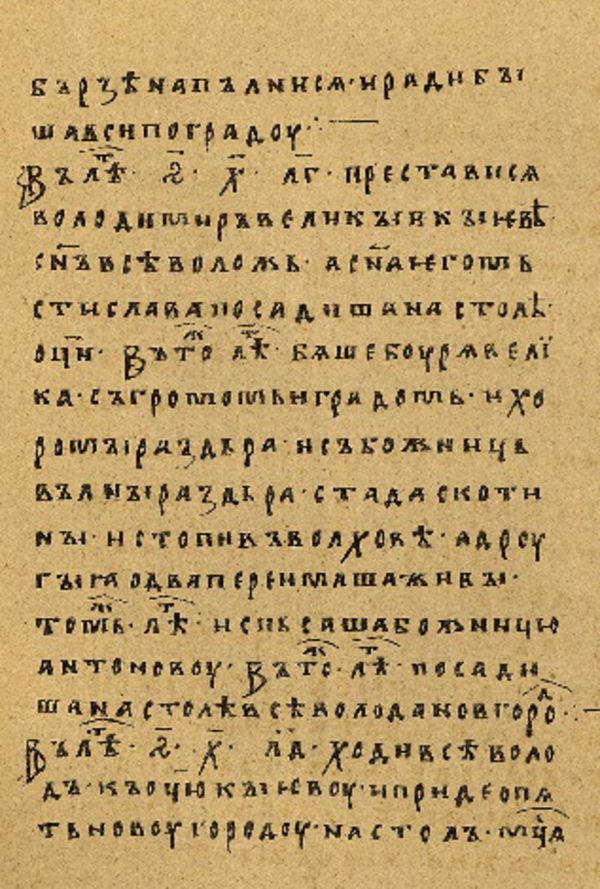 бързѣнапълнисѧ· ирадибꙑ
шавсипоградоу·
Въ лѣⷮ · ҂ѕ҃ · х҃ · лг҃ · престависѧ
володимиръвеликꙑикꙑевѣ
сн҃ъвсѣволожь · асн҃аѥгомь
стиславапосадишанастолѣ·
оц҃и · Въ тоⷤ лѣⷮ · бѧшебоурѧвелі
ка · съгромомьиградомь · ихо
ромꙑраздьра · исъбожницѣ
вълнꙑраздьра · стадаскоти
нꙑ · истопивъволховѣ · адроу
гꙑꙗодваперѥимашаживꙑ ·
томьⷤ · лѣⷮ · исписашабожницю
антоновоу · Въ тоⷤ · лѣⷮ · посади
шанастолѣвсѣволодановгороⷣ ·
Въ лѣⷮ · ҂ѕ҃ · х҃ · лд҃ · ходивсѣволо
дъ · къоц҃юкꙑѥвоу · ипридеопѧ
тьновоугородоу · настолъ · мц҃а